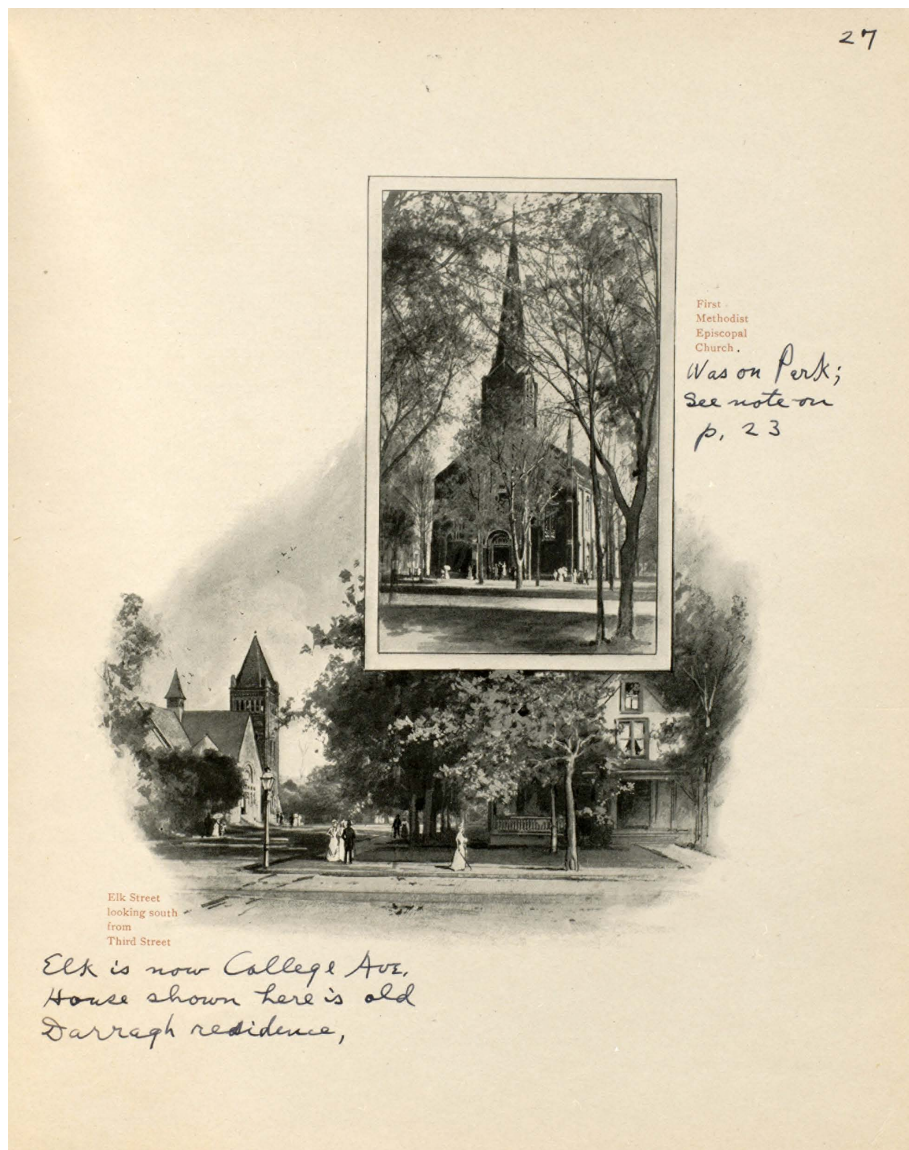 27
First
Methodist
Episcopal
Church.
Was on Park;
See note on
p. 23
Elk Street
looking south
from
Third Street
Elk is now College Ave.
House shown here is old
Darragh residence,